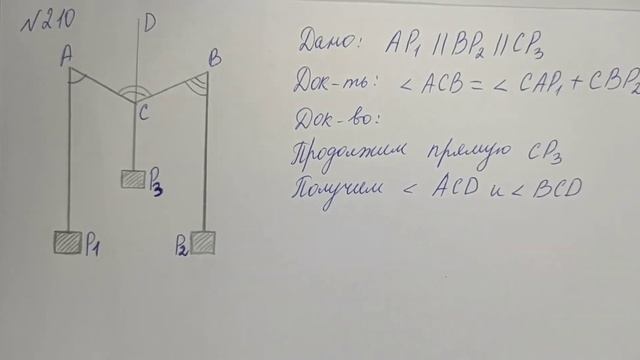 №210
D
A
B
C
P3
P1
P2
Дано: AP1 || BP2 || CP3
Док-ть: < ACB = < CAP1 + CBP2
Док-во:
Продолжим прямую CP3
Получем < ACD и < BCD